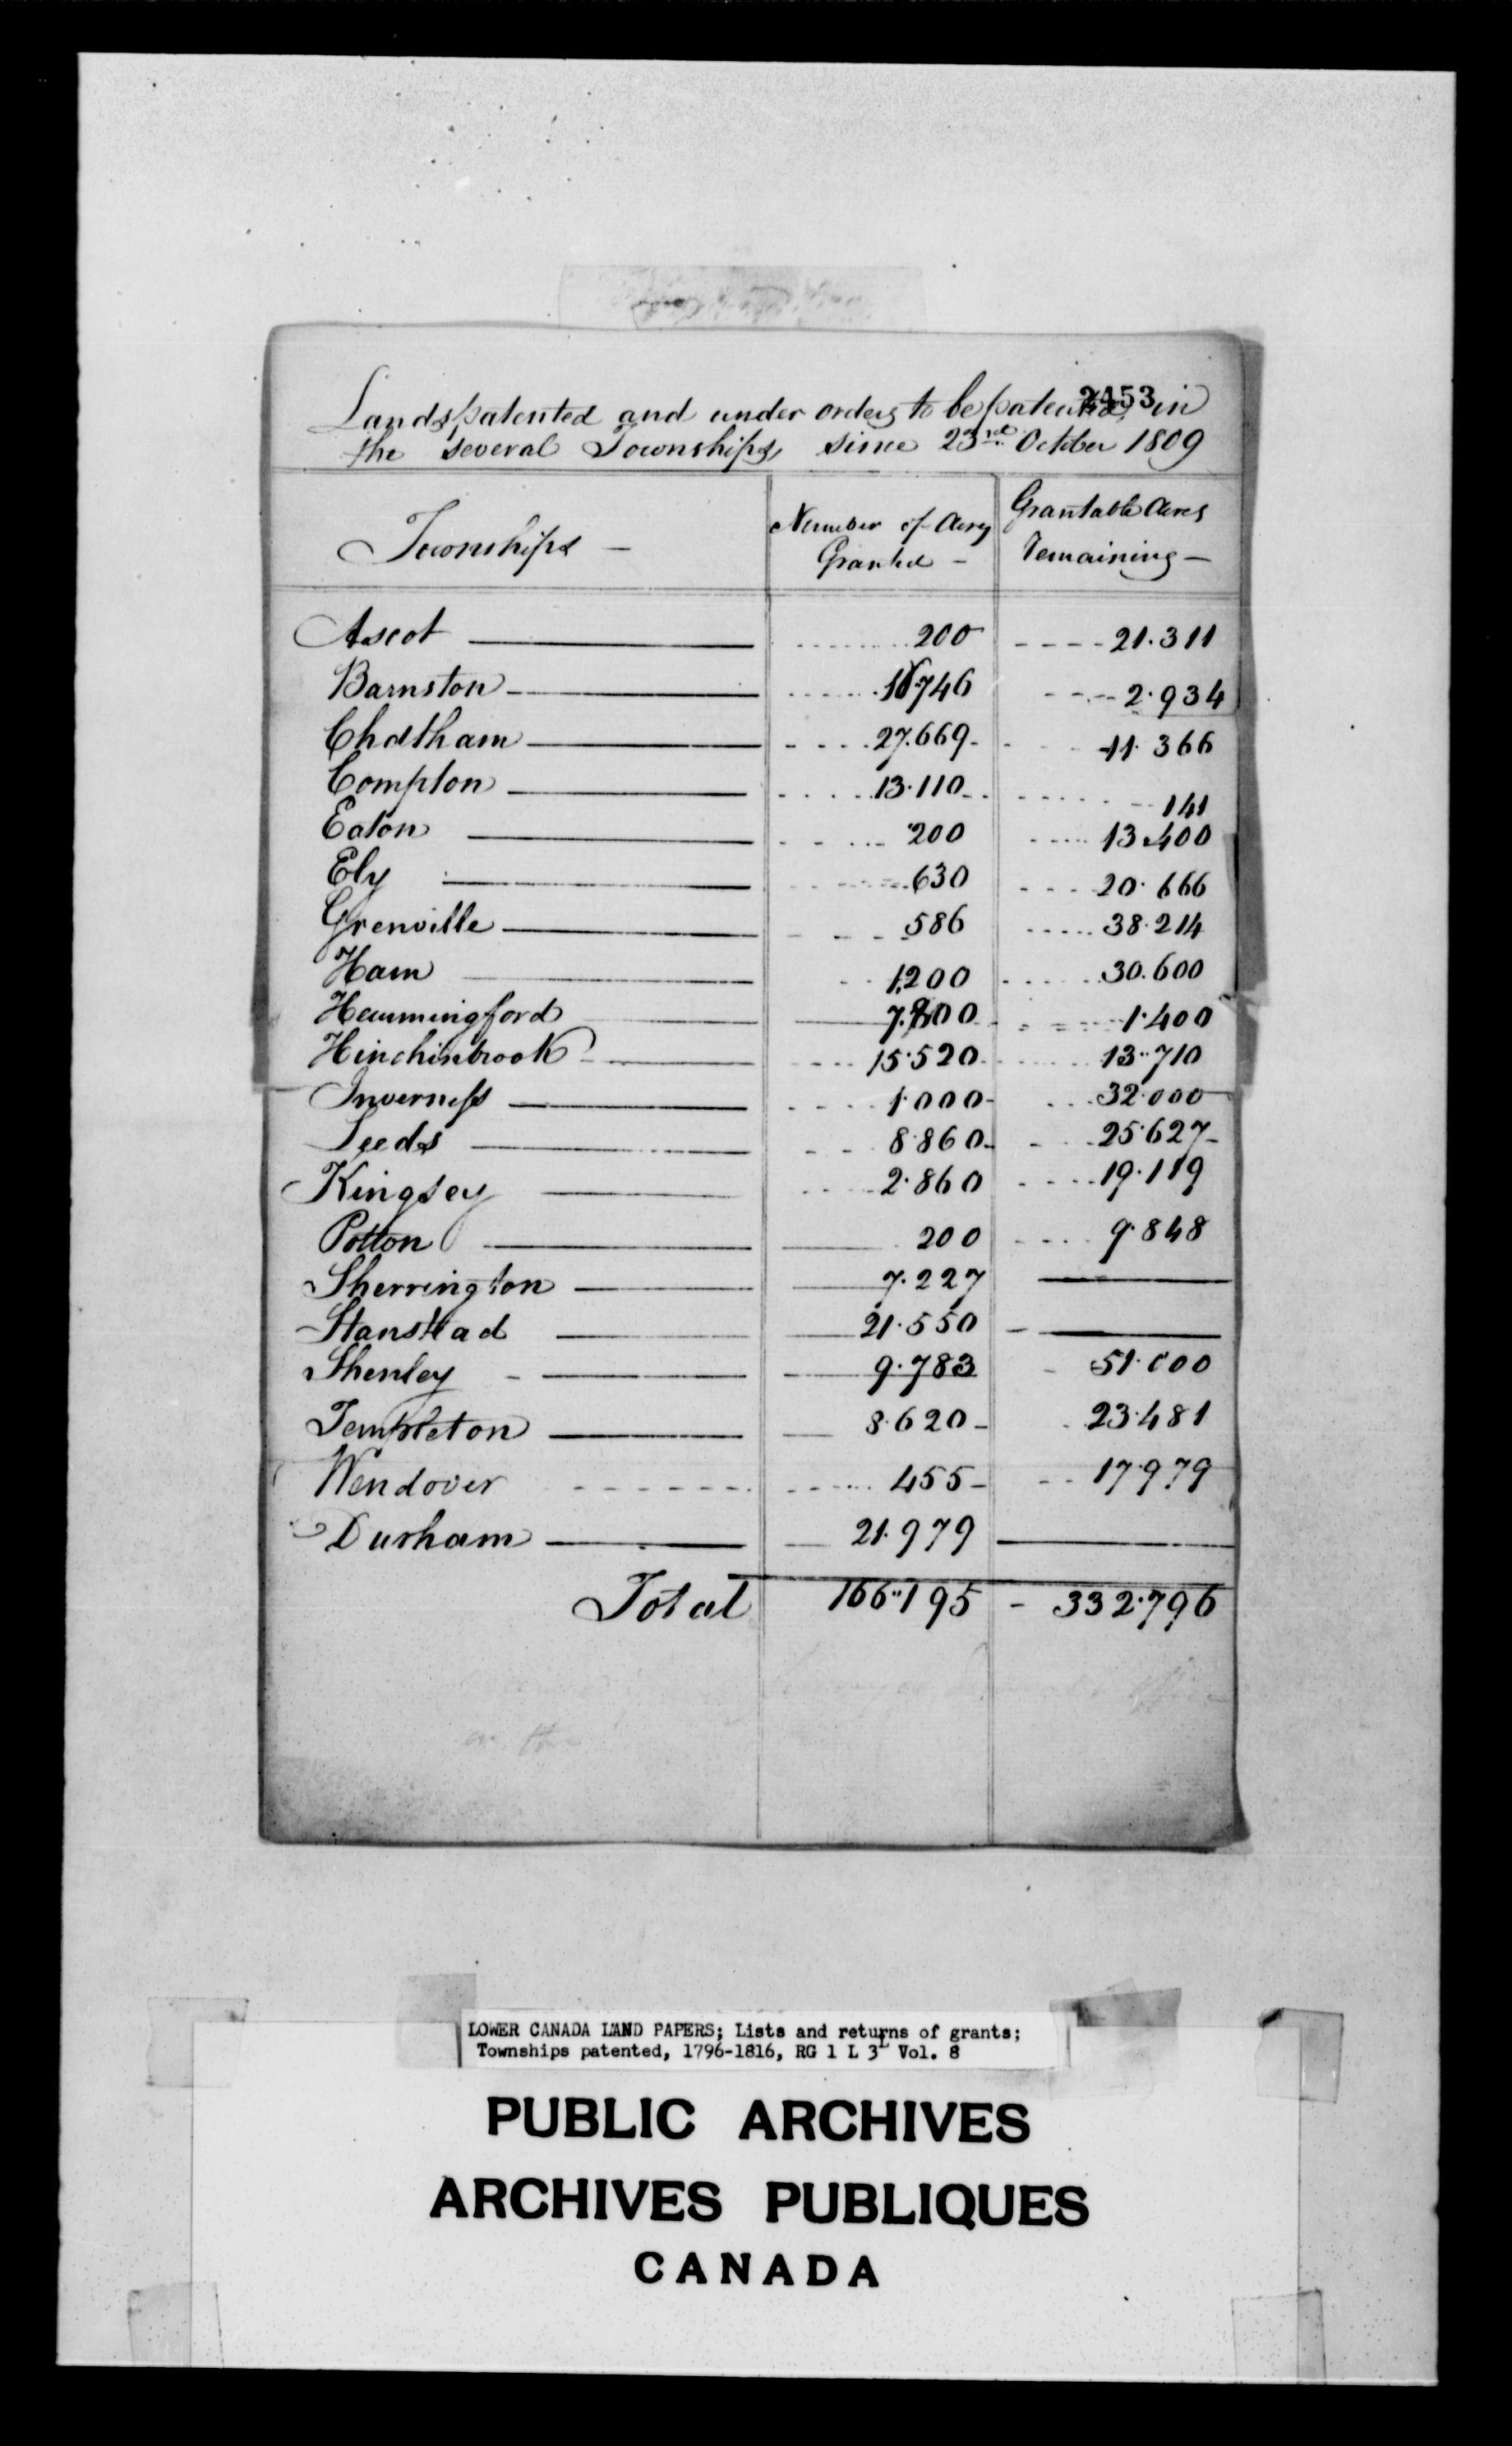 2453
Lands patented and under orders to be patented in
the several Townships, since 23rd October 1809
Townships — Number of Acres Granted — Grantable Acres remaining —
Ascot 200 21.311
Barnston 16.746 2.934
Chatham 27.669 11.366
Compton 13.110 141
Eaton 200 13.400
Ely 630 20.666
Grenville 586 38.214
Ham 1,200 30.600
Hemmingford 7.800 1.400
Hinchinbrook 15.520 13.710
Inverness 1.000 32.000
Leeds 8.860 25.627
Kingsey 2.860 19.119
Potton 200 9.848
Sherrington 7.227 —
Stanstead 21.550 —
Shenley 9.783 51.000
Templeton 8.620 23.481
Wendover 455 17.979
Durham 21.979 —
Total 166.195 332.796
LOWER CANADA LAND PAPERS; Lists and returns of grants;
Townships patented, 1796-1816, RG 1 L 3L Vol. 8
PUBLIC ARCHIVES
ARCHIVES PUBLIQUES
CANADA